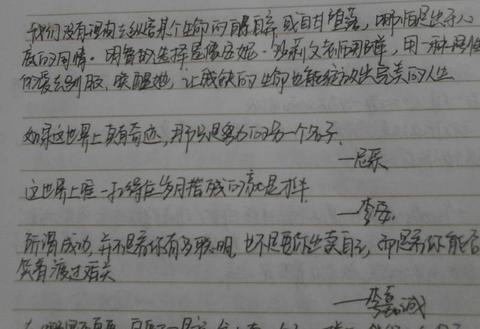 我们没有理由去纵容某个生命的自暴自弃或自甘堕落,哪怕是出于人
度的同情。明智的选择是像安妮·莎莉文老师那样,用一种理性
的爱去引服、唤醒她,让残缺的生命也能绽放出完美的人生
如果这世界上真有奇迹,那只是努力的另一个名字.
—尼采
这世界上唯一扛得住岁月摧残的就是才华
—李安.
所谓成功,并不是看你有多聪明,也不是要你出卖自己,而是看你能否
笑着渡过难关
—李嘉诚